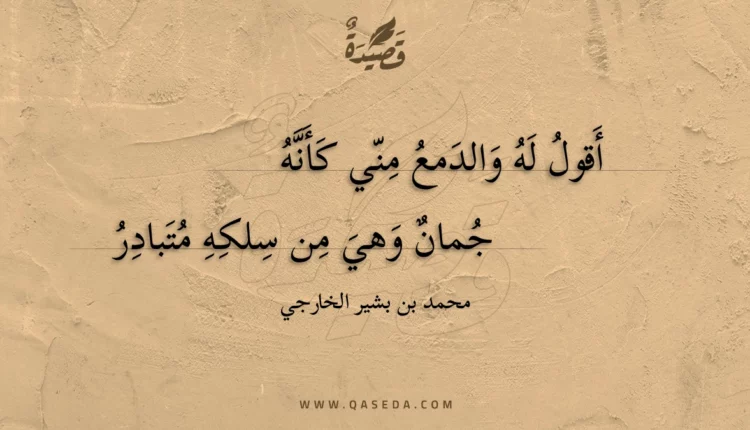 قَصِيدَةٌ
أَقولُ لَهُ وَالدَمعُ مِنّي كَأَنَّهُ
جُمانٌ وَهيَ مِن سِلكِهِ مُتَبادِرُ
محمد بن بشير الخارجي
WWW.QASEDA.COM